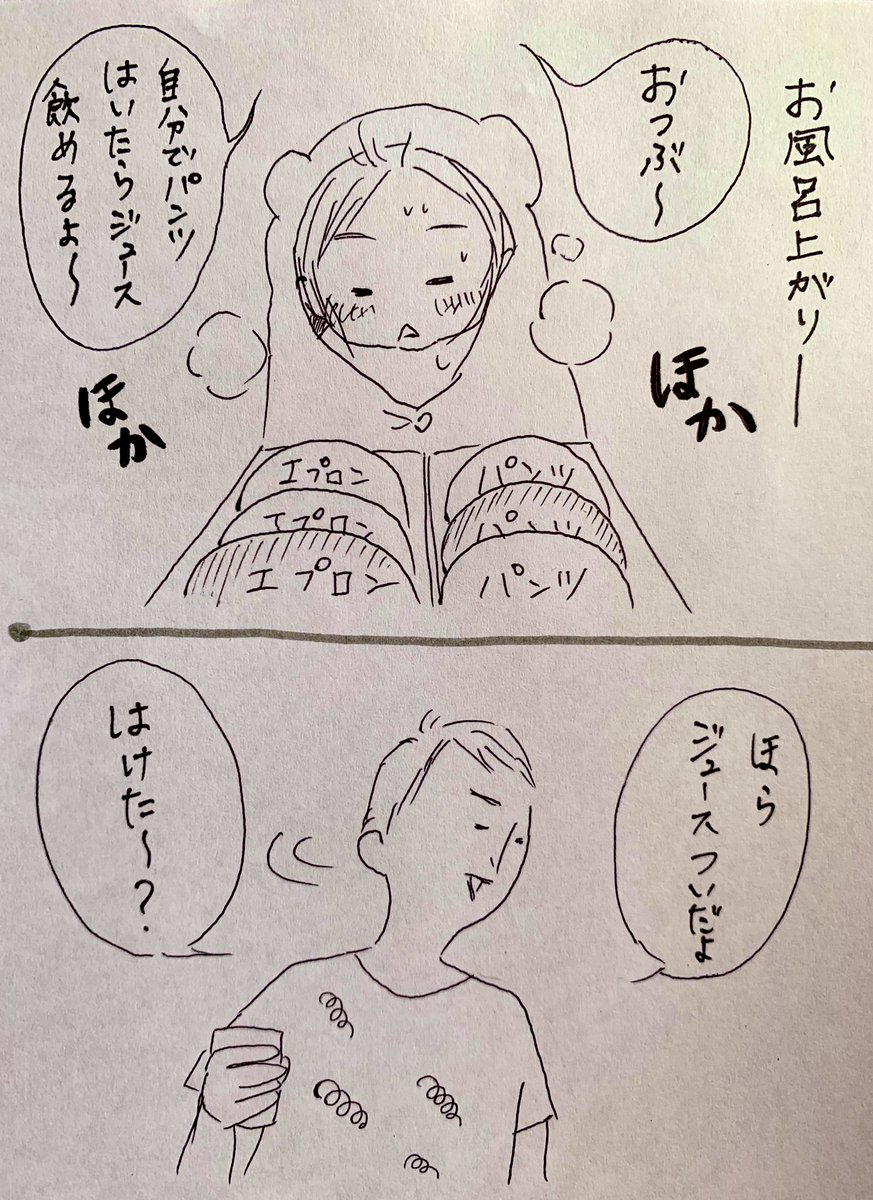 お風呂上がりー
おつぶ〜
自分でパンツ
はいたらジュース
飲めるよ〜
ほか
ほか
エプロン
エプロン
エプロン
パンツ
パンツ
パンツ
ほら
ジュースついだよ
はけた〜?